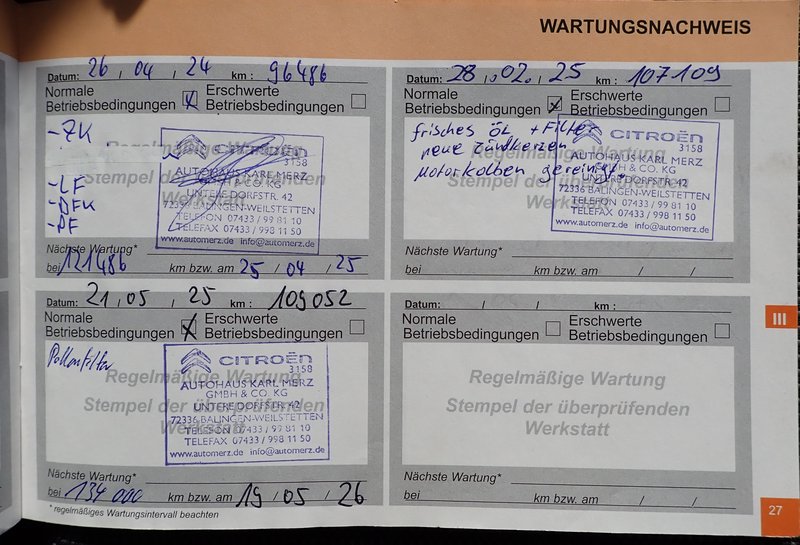 WARTUNGSNACHWEIS
Datum: 26 / 04 / 24 km : 96486
Normale Betriebsbedingungen
Erschwerte Betriebsbedingungen
-ZK
-LF
-DFK
-PF
Regelmäßige Wartung
Stempel der überprüfenden
Werkstatt
CITROËN
3158
AUTOHAUS KARL MERZ
GMBH & CO. KG
UNTERE DORFSTR. 42
72336 BALINGEN-WEILSTETTEN
TELEFON 07433 / 99 81 10
TELEFAX 07433 / 998 11 50
www.automerz.de info@automerz.de
Nächste Wartung*
bei 121486 km bzw. am 25 / 04 / 25
Datum: 28 / 02 / 25 km : 107109
Normale Betriebsbedingungen
Erschwerte Betriebsbedingungen
frisches Öl + Filter
neue Zündkerzen
Motorkolben gereinigt
Regelmäßige Wartung
Stempel der überprüfenden
Werkstatt
CITROËN
3158
AUTOHAUS KARL MERZ
GMBH & CO. KG
UNTERE DORFSTR. 42
72336 BALINGEN-WEILSTETTEN
TELEFON 07433 / 99 81 10
TELEFAX 07433 / 998 11 50
www.automerz.de info@automerz.de
Nächste Wartung*
bei km bzw. am / /
Datum: 21 / 05 / 25 km : 109052
Normale Betriebsbedingungen
Erschwerte Betriebsbedingungen
Pollenfilter
Regelmäßige Wartung
Stempel der überprüfenden
Werkstatt
CITROËN
3158
AUTOHAUS KARL MERZ
GMBH & CO. KG
UNTERE DORFSTR. 42
72336 BALINGEN-WEILSTETTEN
TELEFON 07433 / 99 81 10
TELEFAX 07433 / 998 11 50
www.automerz.de info@automerz.de
Nächste Wartung*
bei 134 000 km bzw. am 19 / 05 / 26
Datum: / / km :
Normale Betriebsbedingungen
Erschwerte Betriebsbedingungen
Regelmäßige Wartung
Stempel der überprüfenden
Werkstatt
Nächste Wartung*
bei km bzw. am / /
* regelmäßiges Wartungsintervall beachten
III
27